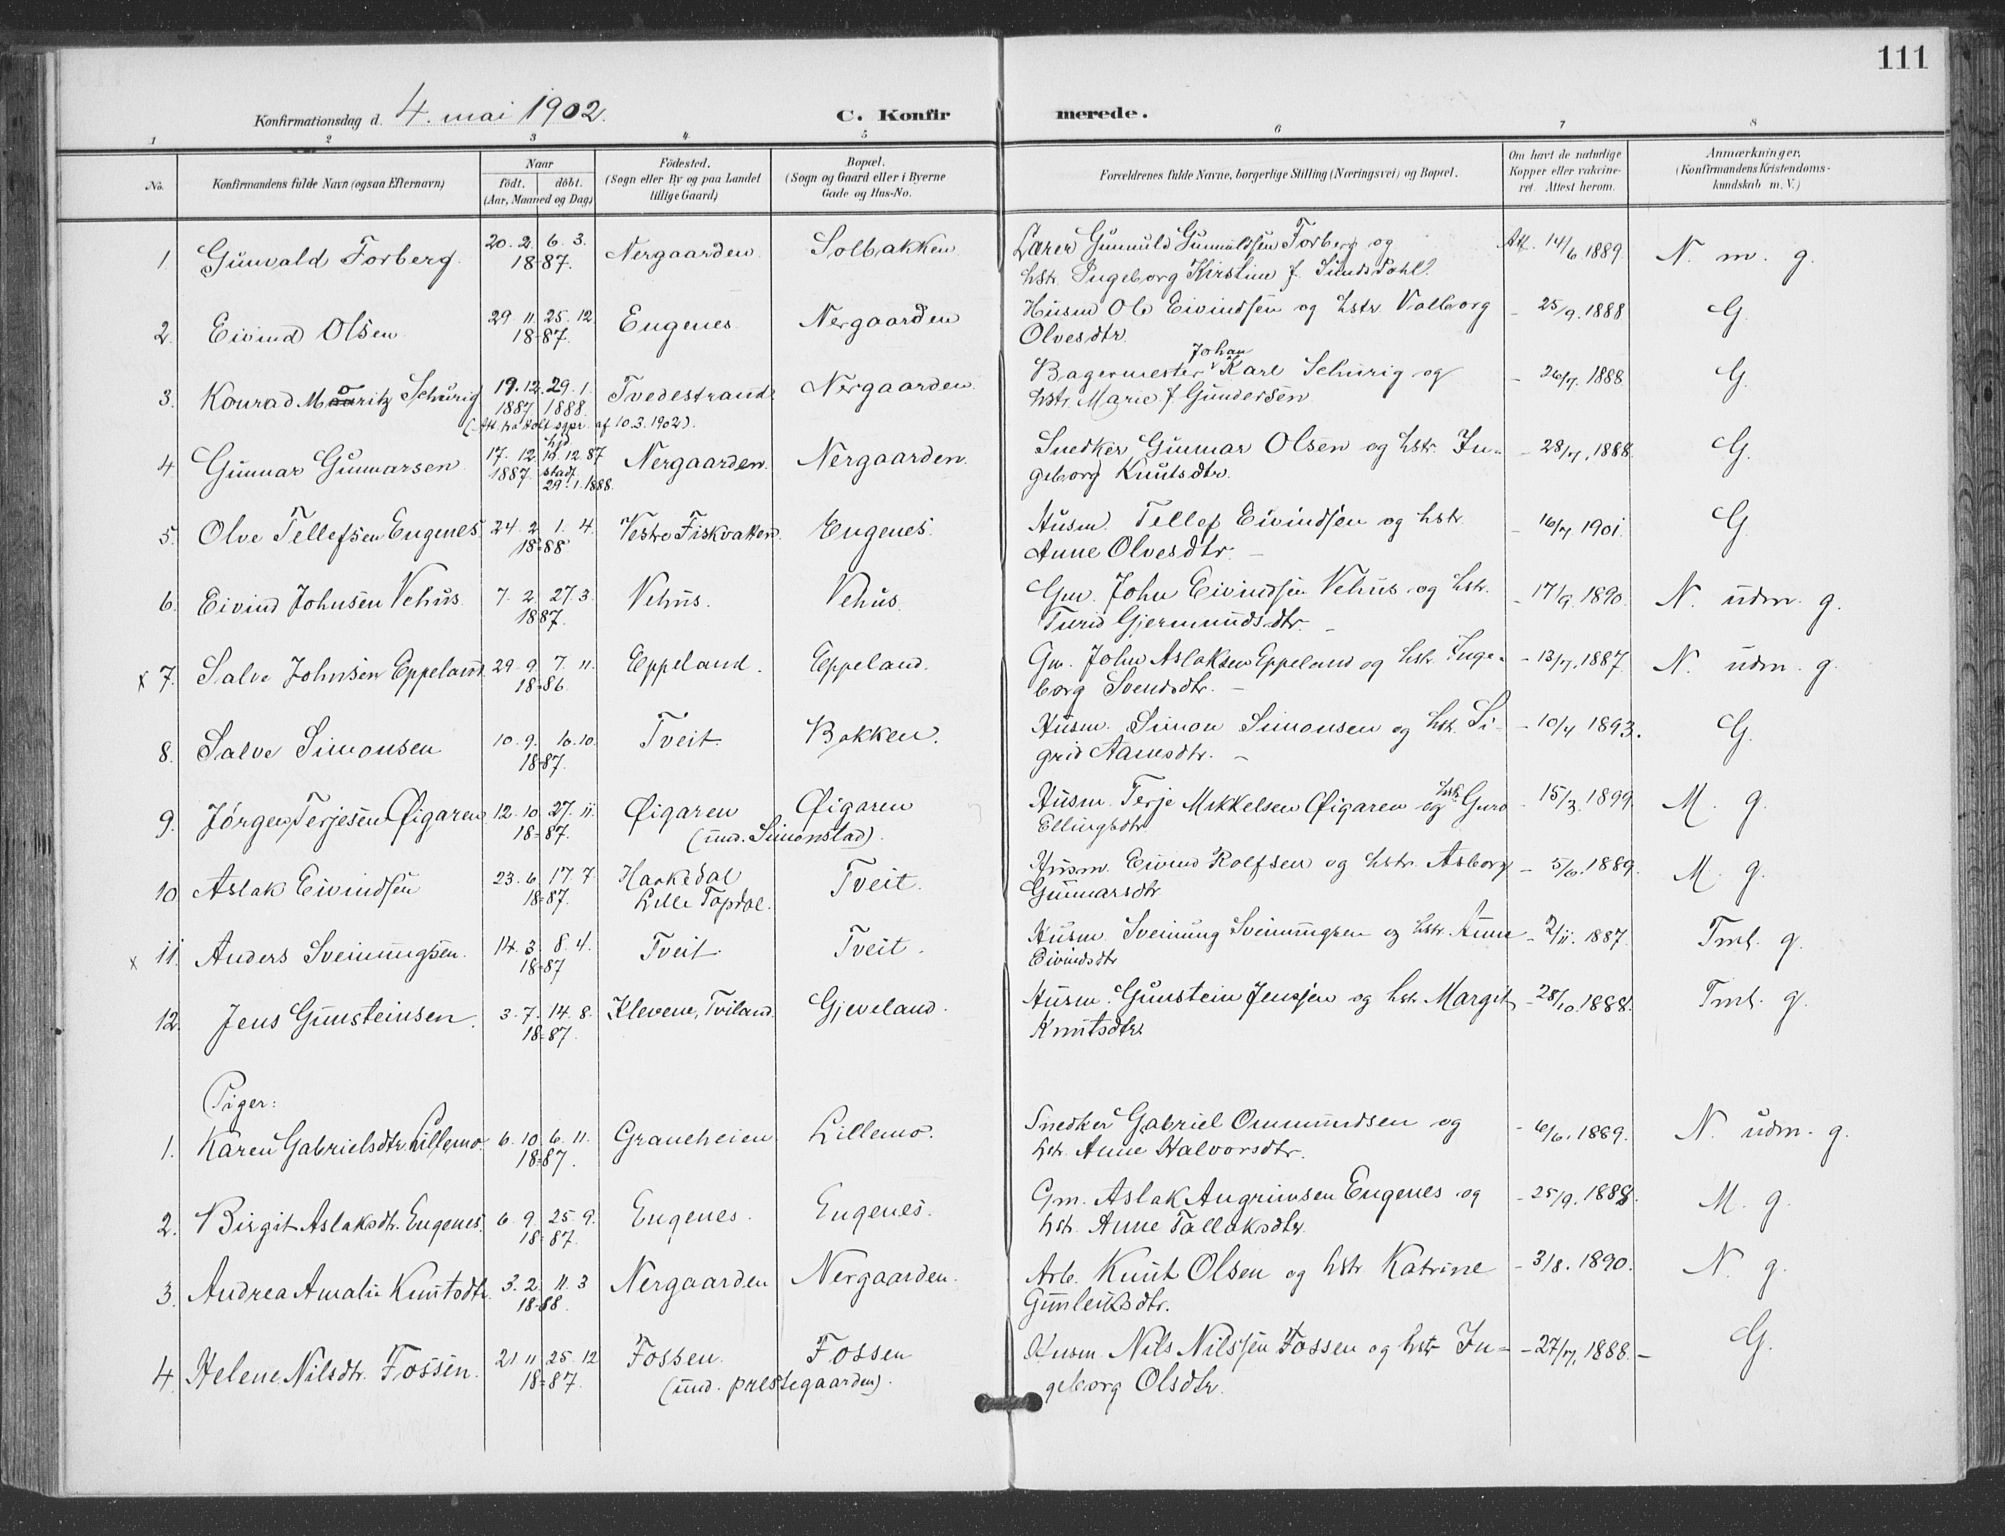 111
Konfirmationsdag d. 4. mai 1902.
C. Konfirmerede.
1 2 3 4 5 6 7 8
No.
Konfirmandens fulde Navn (ogsaa Efternavn)
Naar
födt. döbt.
(Aar, Maaned og Dag)
Födested.
(Sogn eller By og paa Landet
tillige Gaard)
Bopæl.
(Sogn og Gaard eller i Byerne
Gade og Hus-No.
Forældrenes fulde Navne, borgerlige Stilling (Næringsvei) og Bopæl.
Om havt de naturlige
Kopper eller vakcine-
ret. Attest herom.
Anmærkninger,
(Konfirmandens Kristendoms-
kundskab m. V.)
1. Gunvald Forberg. 20. 2. 6. 3. 1887. Nergaarden. Solbakken Lærer Gunnuld Gunnuldsen Forberg og Att. 14/6 1889. N. m. g.
hstr. Ingeborg Kirstine f. Sundsdahl.
2. Eivind Olsen. 29. 11. 25. 12. 1887. Eugenes. Nergaarden Husm Ole Eivindsen og hstr Valborg - 25/9. 1888 G.
Olvesdtr.
3. Konrad Moritz Schurig 19. 12. 1887 29. 1. 1888. Tvedestrand Nergaarden Bagermester Johan Karl Schurig og - 26/7. 1888 G.
(Att. fra Holt sgpr. af 10.3.1902). hstr. Marie f. Gundersen
4. Gunnar Gunnarsen 17. 12. 1887. hjd. 18. 12. 87 stadf. 29. 1. 1888. Nergaarden. Nergaarden. Snedker Gunnar Olsen og hstr. In- - 28/7. 1888. G.
geborg Knutsdtr.
5. Olve Tellefsen Eugenes. 24. 2. 1. 4. 1888 Vestre Fiskvatten. Eugenes. Husm. Tellef Eivindsen og hstr. - 16/7 1901. G.
Anne Olvesdtr. -
6. Eivind Johnsen Vehus. 7. 2. 27. 3. 1887. Vehus. Vehus. Gm. John Eivindsen Vehus og hstr. - 17/9. 1890. N. udm. g.
Turid Gjermundsdtr. -
x 7. Salve Johnsen Eppeland. 29. 9. 7. 11. 1886. Eppeland. Eppeland. Gm. John Aslaksen Eppeland og hstr. Inge- - 13/7. 1887. N. udm. g.
borg Svendsdtr. -
8. Salve Simonsen 10. 9. 16. 10. 1887. Tveit. Bakken. Husm. Simon Simonsen og hstr. Si- - 10/4 1893. G.
grid Aanesdtr. -
9. Jørgen Terjesen Øigaren 12. 10. 27. 11. 1887. Øigaren Øigaren Husm. Terje Mikkelsen Øigaren og hstr. Guro - 15/3. 1899. M. g.
(und. Simonstad). Ellingsdtr
10. Aslak Eivindsen 23. 6. 17. 7. 1887. Haakedal Tveit. Husm. Eivind Rolfsen og hstr. Asborg - 5/6. 1889. M. g.
Lille Topdal. Gunnarsdtr
x 11. Anders Sveinungsen. 14. 3. 8. 4. 1887 Tveit. Tveit. Husm. Sveinung Sveinungsen og hstr. Anne - 2/11. 1887. Tml. g.
Eivindsdtr
12. Jens Gunsteinsen. 3. 7. 14. 8. 1887. Klevene, Tviland. Gjeveland. Husm. Gunstein Jensen og hstr. Margit - 28/10. 1888. Tml. g.
Knutsdtr.
Piger:
1. Karen Gabrielsdtr. Lillemo. 6. 10. 6. 11. 1887. Graneheien Lillemo. Snedker Gabriel Ommundsen og - 6/6. 1889. N. udm. g.
hstr. Anne Halvorsdtr.
2. Birgit Aslaksdtr. Eugenes. 6. 9. 25. 9. 1887. Eugenes. Eugenes. Gm. Aslak Angrimsen Eugenes og - 25/9. 1888. M. g.
hstr. Anne Tallaksdtr.
3. Andrea Amalie Knutsdtr. 3. 2. 11. 3 1888. Nergaarden Nergaarden. Arb. Knut Olsen og hstr Katrine - 3/8. 1890. N. g.
Gunleiksdtr.
4. Helene Nilsdtr. Fossen. 21. 11. 25. 12 1887. Fossen. Fossen Husm. Nils Nilssen Fossen og hstr In- - 27/7. 1888. - G.
(und. prestegaarden). geborg Olsdtr.